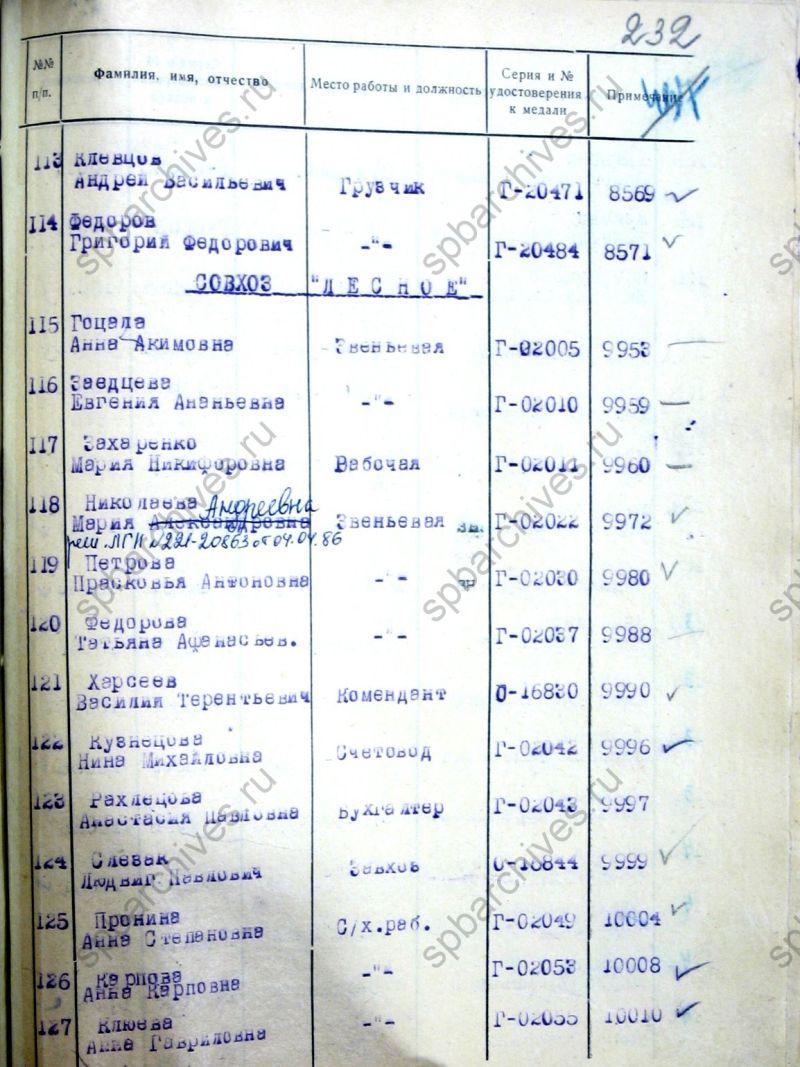 232
№№ п/п. Фамилия, имя, отчество Место работы и должность Серия и № удостоверения к медали Примечание
113 Клевцов
Андрей Васильевич Грузчик Г-20471 8569
114 Федоров
Григорий Федорович -"- Г-20484 8571
СОВХОЗ "ЛЕСНОЕ"
115 Гоцала
Анна Акимовна Звеньевая Г-02005 9953
116 Заедцева
Евгения Ананьевна -"- Г-02010 9959
117 Захаренко
Мария Никифоровна Рабочая Г-02011 9960
118 Николаева Андреевна
Мария Александровна Звеньевая зв. Г-02022 9972
реш. ЛГИ №221-20863 от 04.04.86
119 Петрова
Прасковья Антоновна -"- Г-02030 9980
120 Федорова
Татьяна Афанасьев. -"- Г-02037 9988
121 Харсеев
Василий Терентьевич Комендант О-16830 9990
122 Кузнецова
Нина Михайловна Счетовод Г-02042 9996
123 Рахлецова
Анастасия Павловна Бухгалтер Г-02043 9997
124 Слевак
Людвиг Павлович Завхоз О-16844 9999
125 Пронина
Анна Степановна С/х.раб. Г-02049 10004
126 Карпова
Анна Карповна -"- Г-02053 10008
127 Клюева
Анна Гавриловна -"- Г-02055 10010
spbarchives.ru
spbarchives.ru
spbarchives.ru
spbarchives.ru
spbarchives.ru
spbarchives.ru